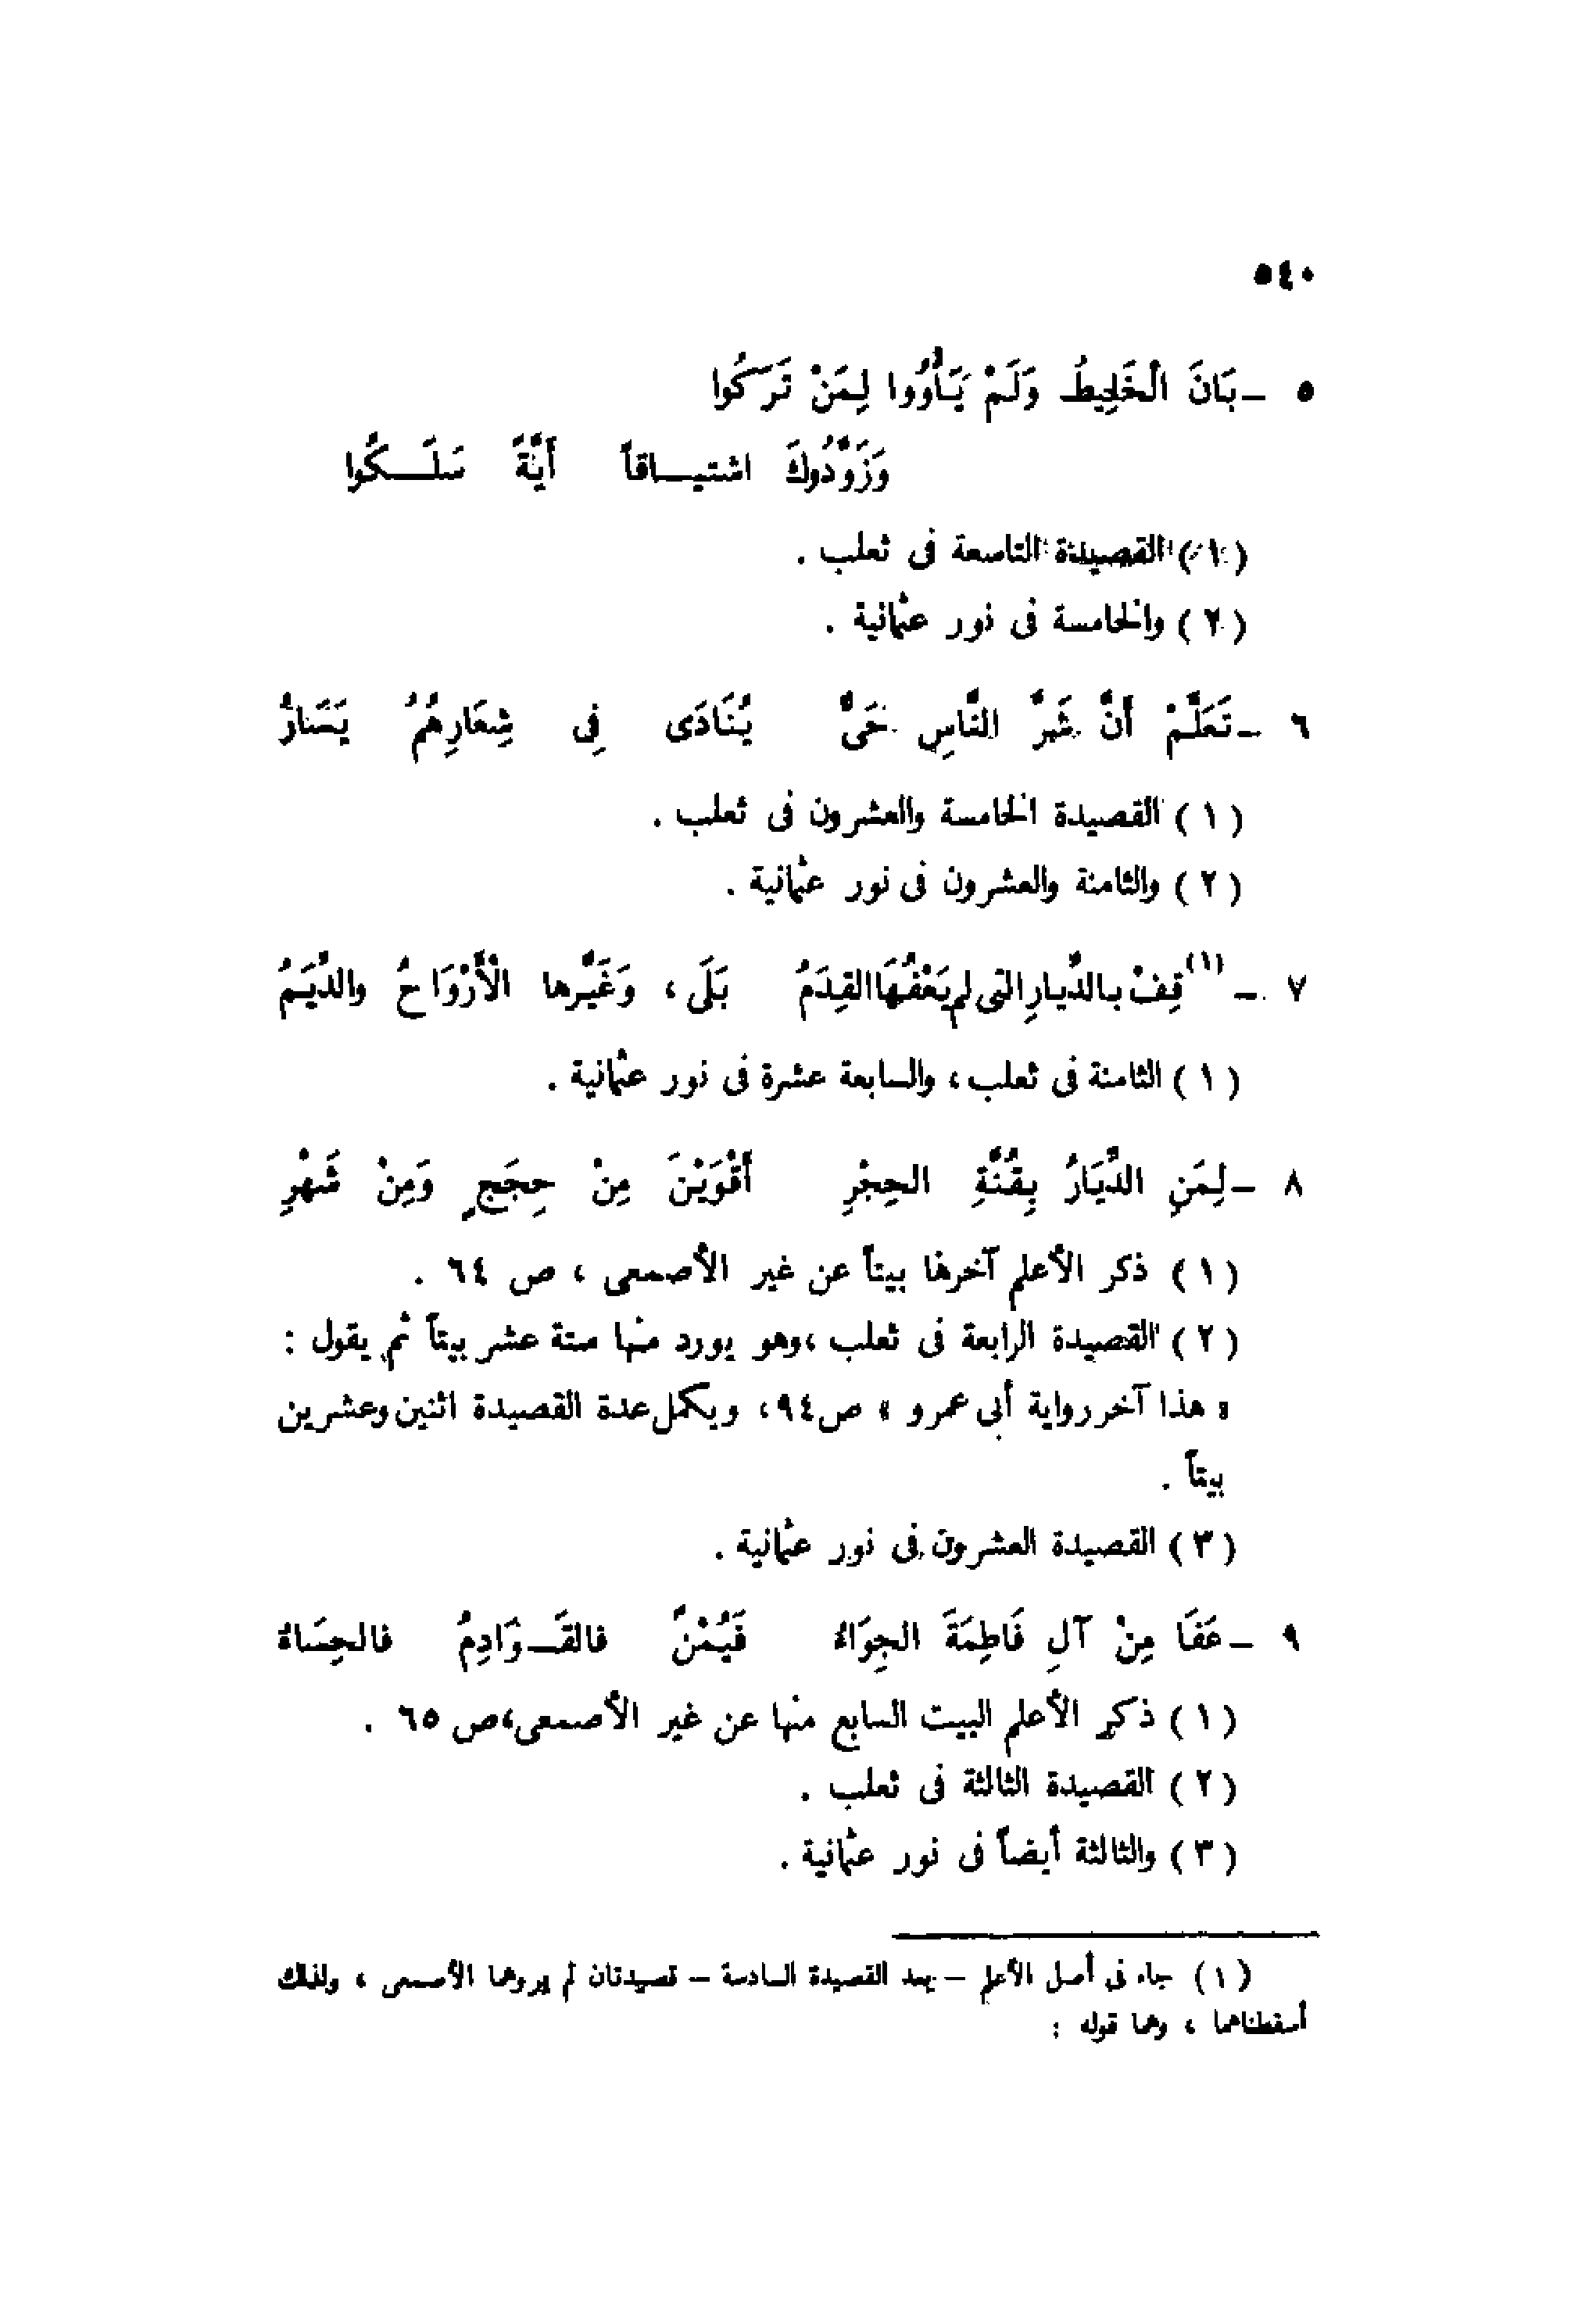 ٥٤٠
٥ – بَانَ الْخَلِيطُ وَلَمْ يَأْوُوا لِمَنْ تَرَكُوا
وَزَوَّدُوكَ اشتيــاقاً أَيَّةً سَلَــكُوا
(١) القصيدة التاسعة فى ثعلب .
(٢) والخامسة فى نور عثمانية .
٦ – تَعَلَّمْ أَنَّ شَرَّ النَّاسِ حَىٌّ يُنَادَى فِى شِعَارِهُمُ يَسَارُ
(١) القصيدة الخامسة والعشرون فى ثعلب .
(٢) والثامنة والعشرون فى نور عثمانية .
٧ – (١) قِفْ بالدِّيارِ التى لم يَعْفُهَا القِدَمُ بَلَى ، وَغَيَّرها الْأَرْوَاحُ والدِّيَمُ
(١) الثامنة فى ثعلب ، والسابعة عشرة فى نور عثمانية .
٨ – لِمَنِ الدِّيَارُ بِقُنَّةِ الحِجْرِ أَقْوَيْنَ مِنْ حِجَجٍ وَمِنْ شَهْرِ
(١) ذكر الأعلم آخرها بيتاً عن غير الأصمعى ، ص ٦٤ .
(٢) القصيدة الرابعة فى ثعلب ، وهو يورد منها ستة عشر بيتاً ثم يقول :
« هذا آخر رواية أبى عمرو » ص ٩٤ ، ويكمل عدة القصيدة اثنين وعشرين
بيتاً .
(٣) القصيدة العشرون فى نور عثمانية .
٩ – عَفَا مِنْ آلِ فَاطِمَةَ الجِوَاءُ فَيُمْنٌ فالقَــوَادِمُ فالحِسَاءُ
(١) ذكر الأعلم البيت السابع منها عن غير الأصمعى ، ص ٦٥ .
(٢) القصيدة الثالثة فى ثعلب .
(٣) والثالثة أيضاً فى نور عثمانية .
(١) جاء فى أصل الأعلم – بعد القصيدة السادسة – قصيدتان لم يروهما الأصمعى ، ولذلك
أسقطناهما ، وهما قوله :